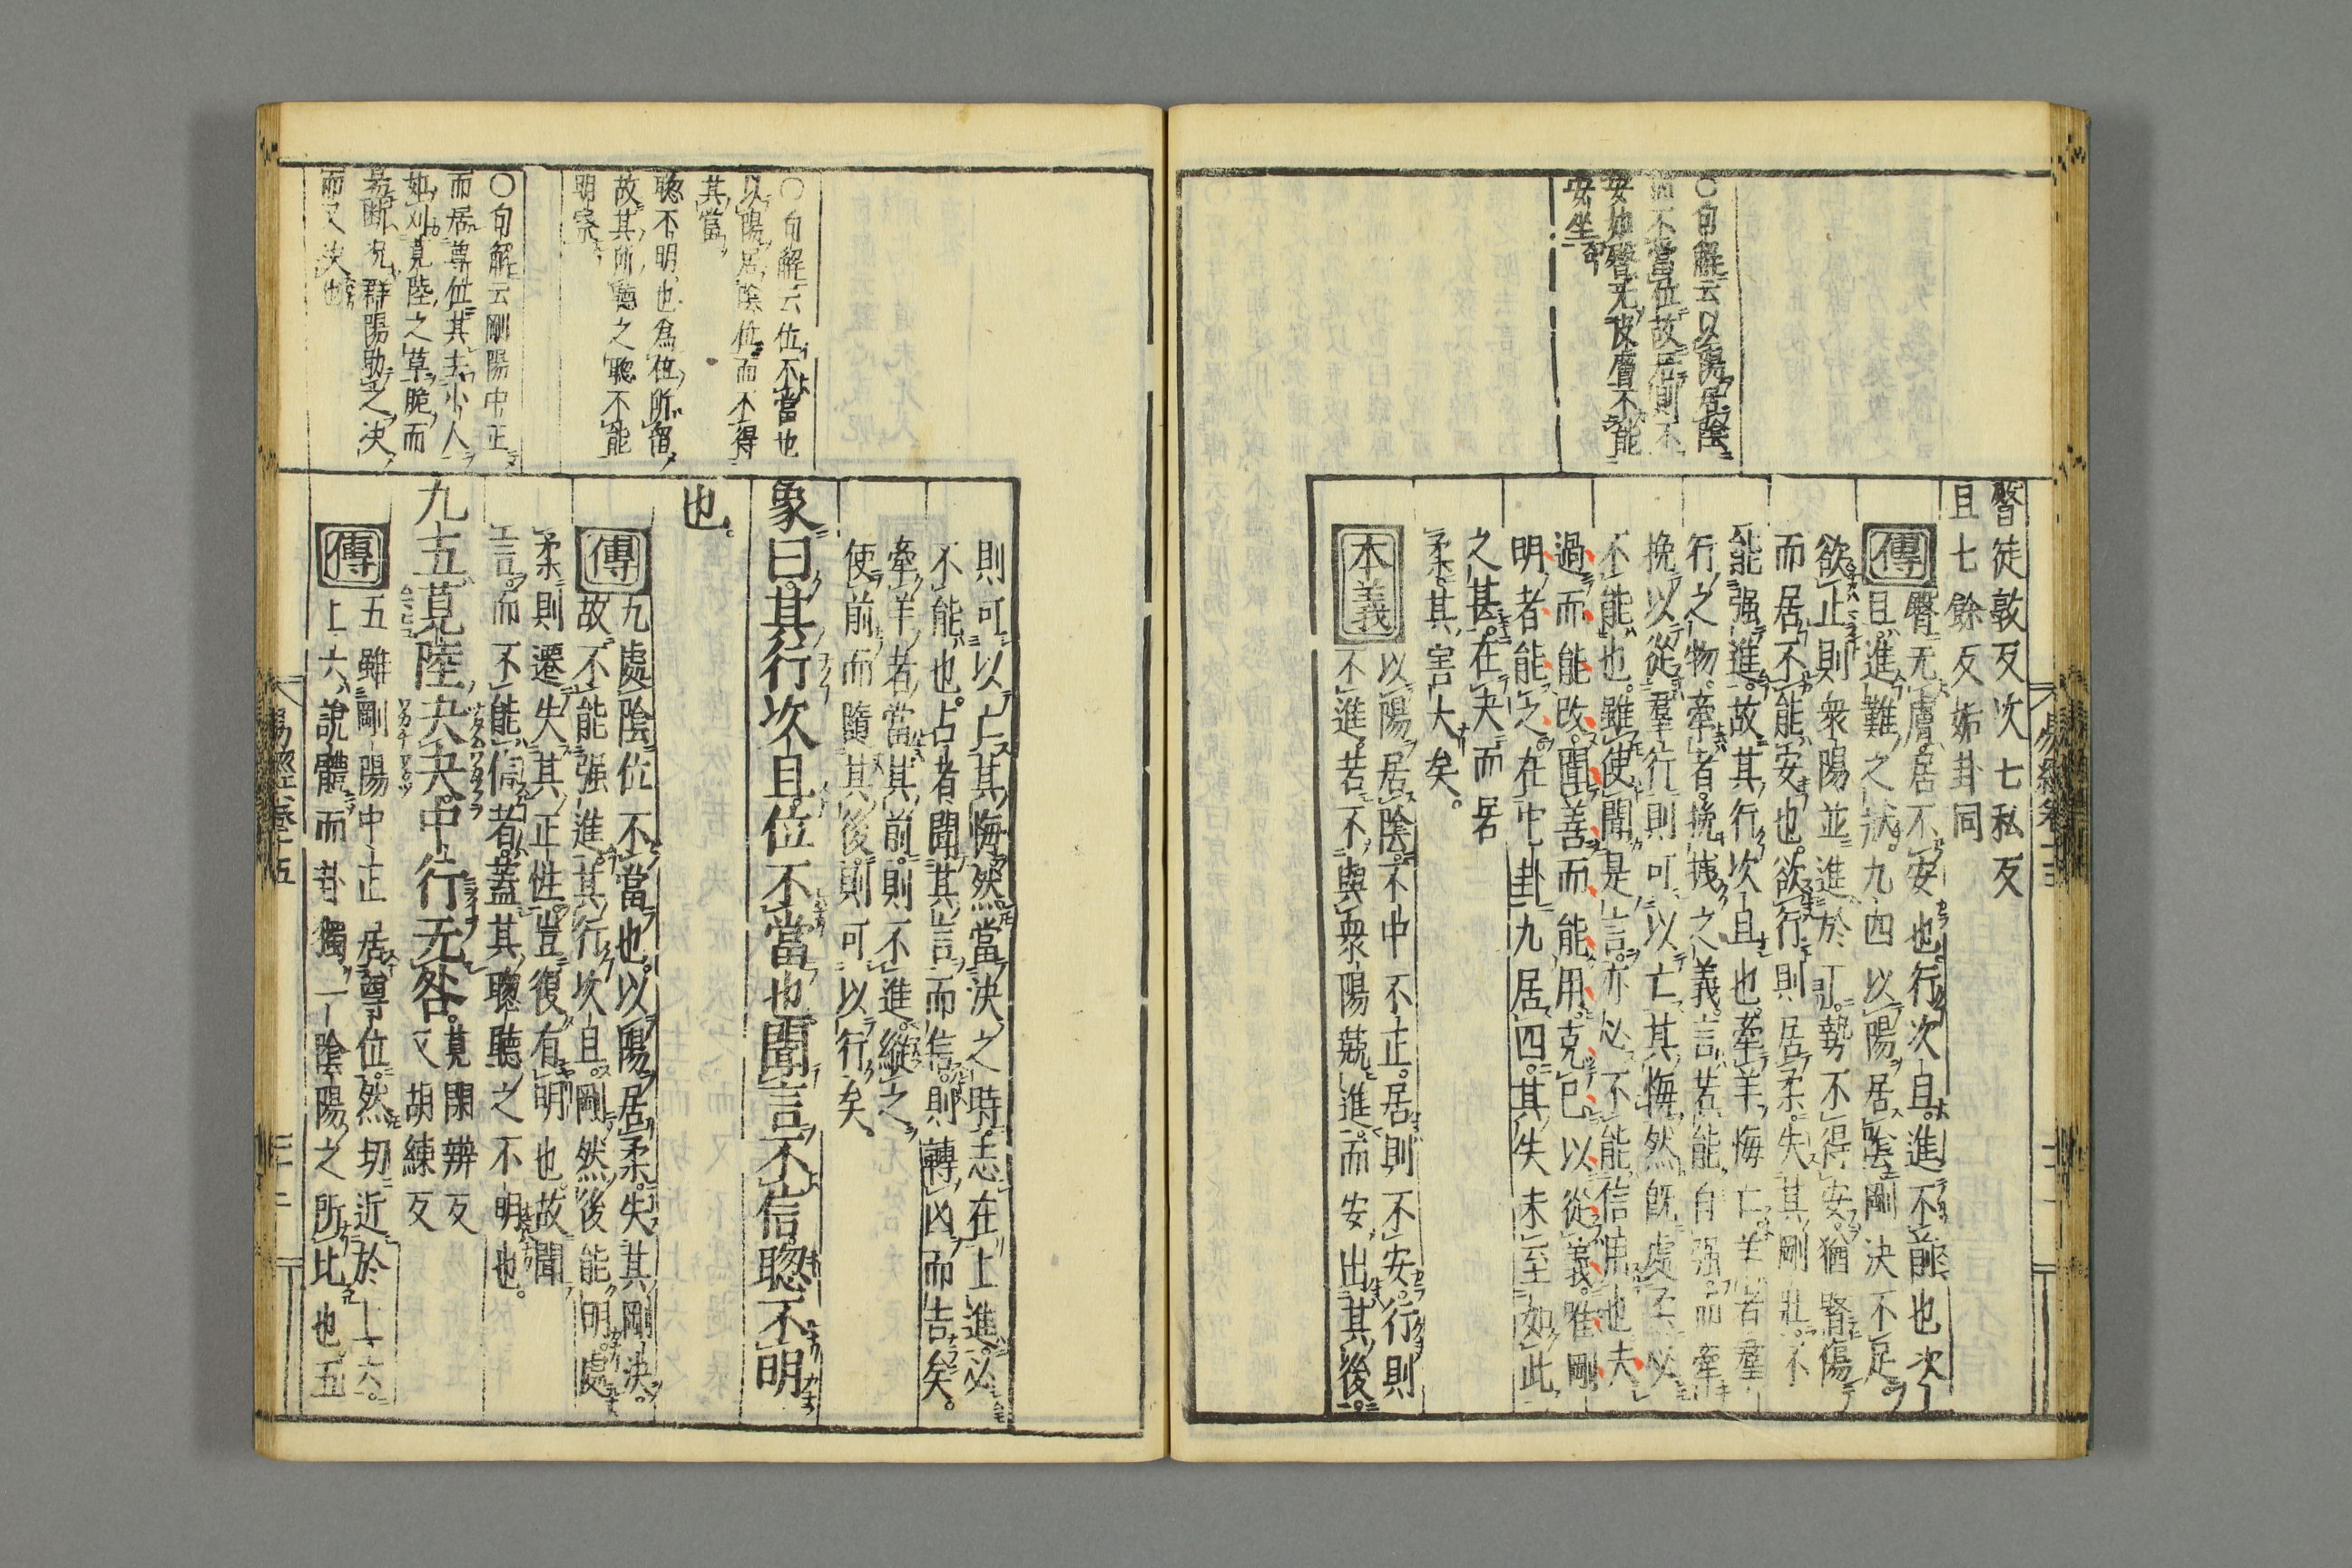 ○句解云以陽居陰
而不當位故居則不
安如臀无皮膚不能
安坐
臀徒敦反次七私反
且七餘反姤卦同
傳
臀无膚居不安也。行次且。進不前也次
且。進難之狀。九四以陽居陰剛決不足
欲止則衆陽並進於下。勢不得安。猶臀傷
而居不能安也。欲行則居柔。失其剛壯。不
能强進。故其行次且也。牽羊悔亡。羊者羣
行之物。牽者。挽拽之義。言若能自强。而牽
挽以從羣行則可以亡其悔然旣處柔必
不能也。雖使聞是言。亦必不能信用也夫
過而能改。聞善而能用。克己以從義。唯剛
明者能之。在它卦九居四。其失未至如此
之甚。在夬而居
柔。其害大矣。
本義
以陽居陰。不中不正。居則不安。行則
不進。若不與衆陽競進。而安出其後。
易經卷十五
○句解云位不當也
以陽居陰位而不得
其當
聦不明。也為位所留
故其所聽之聦不能
明審
○句解云剛陽中正
而居尊位其去小人
如刈莧陸之草脆而
易斷况群陽助之決
而又決也
則可以亡其悔然。當決之時。志在上進。必
不能也。占者聞其言。而信。則轉凶而吉矣。
牽羊者。當其前。則不進。縱之
使前。而隨其後。則可以行矣。
象曰。其行次且。位不當也聞言不信。聦不明
也。
傳
九處陰位不當也。以陽居柔。失其剛決。
故不能强進。其行次且。剛然後能明。處
柔則遷失其正性。豈復有明也。故聞
言。而不能信者。蓋其聦聽之不明也。
九五莧陸夬夬。中行无咎。
莧閑辨反
又胡練反
傳
五雖剛陽中正居尊位。然切近於上六。
上六。說體而卦獨一陰陽之所比也五
易經卷十五